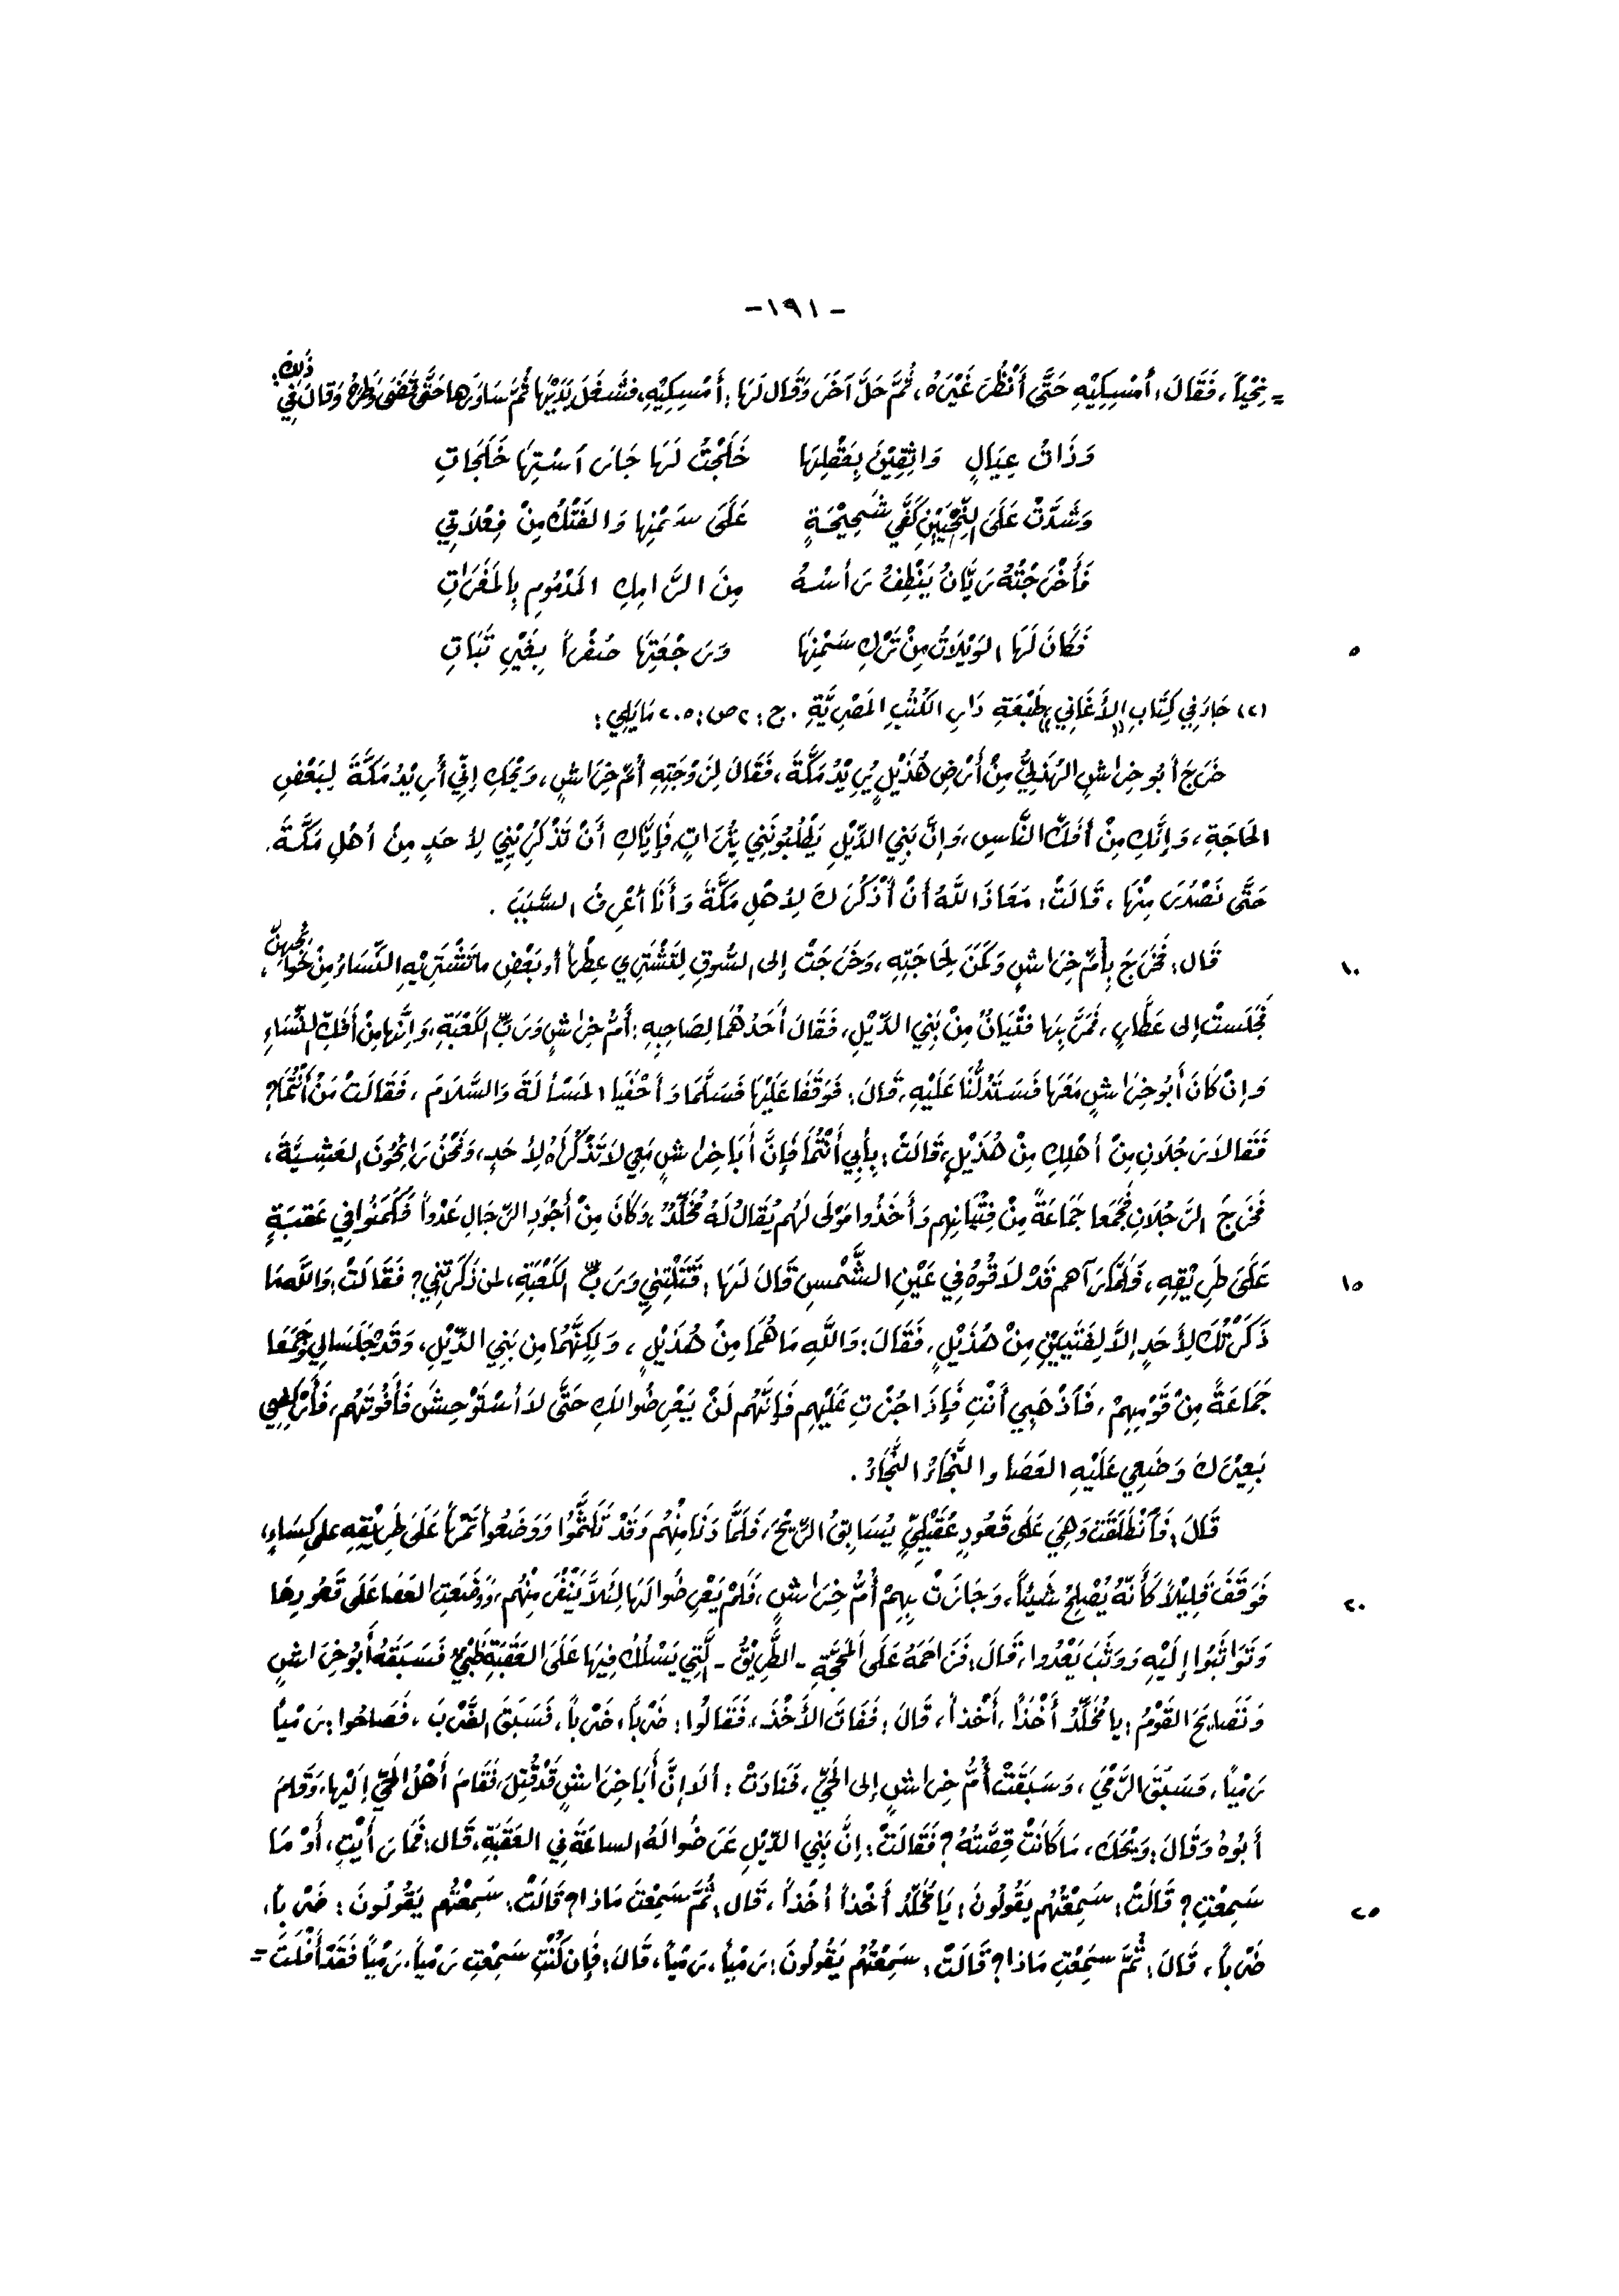 -١٩١-
= نِحْيَاً، فَقَالَ: أَمْسِكِيْهِ حَتَّى أَنْظُرَ غَيْرَهُ، ثُمَّ حَلَّ آخَرَ وَقَال لَهَا: أَمْسِكِيْهِ، فَشَغَلَ يَدَيْهَا ثُمَّ سَاوَرَهَا حَتَّى قَضَى وَطَرَهُ وَقَالَ فِي ذَلِكَ:
وَذَاتُ عِيَالٍ وَاثِقِيْنَ بِعَقْلِهَا خَلَجْتُ لَهَا جَارَ اَسْتِهَا خَلَجَاتِ
وَشَدَّتْ عَلَى النِّحْيَيْنِ كَفَّي شَحِيْحَةٍ عَلَى سَمْنِهَا وَالفَتْكُ مِنْ فِعْلَاتِي
فَأَخْرَجْتُهُ رَيَّانَ يَنْطِفُ رَأسُهُ مِنَ الرَّامِكِ المَدْمُومِ بِالمَقَرَاتِ
٥ فَكَانَ لَهَا الوَيْلَاتُ مِنْ تَرْكِ سَمْنِهَا وَرَجْعَتِهَا صِفْراً بِغَيْرِ بَتَاتِ
(٢) جَاءَ فِي كِتَابِ «الأَغَانِي» طَبْعَةِ دَارِ الكُتُبِ المَصْرِيَّةِ. ج: ٢ ص: ٢٠٥ مَا يَلِي:
خَرَجَ أَبُو خِرَاشٍ الهُذَلِيُّ مِنْ أَرْضِ هُذَيْلٍ يُرِيْدُ مَكَّةَ، فَقَالَ لِزَوْجَتِهِ أُمِّ خِرَاشٍ، وَيْحَكِ إِنِّي أُرِيْدُ مَكَّةَ لِبَعْضِ
الحَاجَةِ، وَإِنَّكِ مِنْ أَفَكِّ النَّاسِ، وَإِنَّ بَنِي الدِّيْلِ يَطْلُبُونَنِي بِتِرَاتٍ، فَإِيَّاكِ أَنْ تَذْكُرِيْنِي لِأَحَدٍ مِنْ أَهْلِ مَكَّةَ.
حَتَّى نَصْدُرَ مِنْهَا، قَالَتْ: مَعَاذَ اللَّهِ أَنْ أَذْكُرَكَ لِأَهْلِ مَكَّةَ وَأَنَا أَعْرِفُ السَّبَبَ.
١٠ قَال: فَخَرَجَ بِأُمِّ خِرَاشٍ وَكَمَنَ لِحَاجَتِهِ، وَخَرَجَتْ إلى السُّوقِ لِتَشْتَرِي عِطْراً أو بَعْضِ ما تَشْتَرِيْهِ النِّسَاءُ مِنْ حَوَائِجِهِنَّ،
فَجَلَسَتْ إلى عَطَّارٍ، فَمَرَّ بِهَا فَتَيَانِ مِنْ بَنِي الدِّيْلِ، فَقَالَ أَحَدُهُمَا لِصَاحِبِهِ: أُمُّ خِرَاشٍ وَرَبِّ الكَعْبَةِ، وَإِنَّهَا مِنْ أَفَكِّ النِّسَاءِ
وَإِنْ كَانَ أَبُو خِرَاشٍ مَعَهَا فَسَتَدُلُّنَا عَلَيْهِ، قَالَ: فَوَقَفَا عَلَيْهَا فَسَلَّمَا وَأَحْفَيَا المَسْألَةَ وَالسَّلَامَ، فَقَالَتْ مَنْ أَنْتُمَا؟
فَقَالَا رَجُلَانِ مِنْ أَهْلِكِ مِنْ هُذَيْلٍ، قَالَتْ: بِأَبِي أَنْتُمَا فَإِنَّ أَبَا خِرَاشٍ مَعِي لَا تَذْكُرَاهُ لِأَحَدٍ، وَنَحْنُ رَائِحُونَ العَشِيَّةَ،
فَخَرَجَ الرَّجُلَانِ فَجَمَعَا جَمَاعَةً مِنْ فِتْيَانِهِم وَأَخَذُوا مَوْلَى لَهُم يُقَالُ لَهُ مُخَلَّدٌ، وَكَانَ مِنْ أَجْوَدِ الرِّجَالِ عَدْواً فَكَمَنُوا فِي عَقَبَةٍ
١٥ عَلَى طَرِيْقِهِ، فَلَمَّا رَآهم قَدْ لَاقُوهُ فِي عَيْنِ الشَّمْسِ قَالَ لَهَا: قَتَلْتِنِي وَرَبِّ الكَعْبَةِ، لِمَن ذَكَرْتِنِي؟ فَقَالَتْ: وَاللَّهِ مَا
ذَكَرْتُكَ لِأَحَدٍ إلَّا لِفَتَيَيْنِ مِنْ هُذَيْلٍ، فَقَالَ: وَاللَّهِ مَا هُمَا مِنْ هُذَيْلٍ، وَلَكِنَّهُمَا مِن بَنِي الدِّيْلِ، وَقَدْ جَلَسَا لِي وَجَمَعَا
جَمَاعَةً مِنْ قَوْمِهِمْ، فَاَذْهَبِي أَنْتِ فَإِذَا جُزْتِ عَلَيْهِم فَإِنَّهُم لَنْ يَعْرِضُوا لَكِ حَتَّى لَا أَسْتَوْحِشَ فَأَفُوتَهُم، فَأَرْكِضِي
بَعِيْرَكِ وَضَعِي عَلَيْهِ العَصَا والنَّجَاءُ النَّجَاءُ.
قَالَ: فَاَنْطَلَقَتْ وَهِيَ عَلَى قَعُودٍ عُقَيْلِيٍّ يُسَابِقُ الرِّيْحَ، فَلَمَّا دَنَا مِنْهُم وَقَدْ تَلَثَّمُوا وَوَضَعُوا تَمْراً عَلَى طَرِيْقِهِ على كِسَاءٍ،
٢٠ فَوَقَفَ قَلِيْلاً كَأَنَّهُ يُصْلِحُ شَيْئاً، وَجَازَتْ بِهِمْ أُمُّ خِرَاشٍ، فَلَمْ يَعْرِضُوا لَهَا لِئَلَّا يَنْفِرَ مِنْهُم، وَوَضَعَتِ العَصا عَلَى قَعُودِهَا
وَتَوَاثَبُوا إلَيْهِ وَوَثَبَ يَعْدُو، قَالَ: فَزَاحَمَهُ عَلَى المَحَجَّةِ - الطَّرِيْقُ - الَّتِي يَسْلُكُ فِيْهَا عَلَى العَقَبَةِ ظَبْيٌ فَسَبَقَهُ أَبُو خِرَاشٍ
وَتَصَايَحَ القَوْمُ: يا مُخَلَّدُ أَخْذاً، أَخْذاً، قَالَ: فَفَاتَ الأَخْذَ، فَقَالُوا: ضَرْباً، ضَرْباً، فَسَبَقَ الضَّرْبَ، فَصَاحُوا: رَمْياً
رَمْياً، فَسَبَقَ الرَّمْيَ، وَسَبَقَتْ أُمُّ خِرَاشٍ إلى الحَيِّ، فَنَادَتْ: ألَا إنَّ أَبَا خِرَاشٍ قَدْ قُتِلَ، فَقَامَ أَهْلُ الحَيِّ إلَيْها، وَقَامَ
أَبُوهُ وَقَالَ: وَيْحَكِ، مَا كَانَتْ قِصَّتُهُ؟ فَقَالَتْ: إنَّ بَنِي الدِّيْلِ عَرَضُوا لَهُ الساعَةَ فِي العَقَبَةِ، قَال: فَمَا رَأَيْتِ، أَوْ مَا
٢٥ سَمِعْتِ؟ قَالَتْ: سَمِعْتُهُم يَقُولُونَ: يَا مُخَلَّدُ أَخْذاً أَخْذاً، قَال: ثُمَّ سَمِعْتِ مَاذا؟ قَالَتْ: سَمِعْتُهُم يَقُولُونَ: ضَرْباً،
ضَرْباً، قَالَ: ثُمَّ سَمِعْتِ مَاذا؟ قَالَتْ: سَمِعْتُهُم يَقُولُونَ: رَمْياً، رَمْياً، قَالَ: فَإِن كُنْتِ سَمِعْتِ رَمْياً، رَمْياً فَقَدْ أَفْلَتَ =